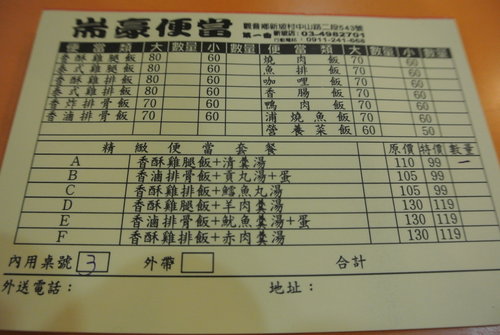 崙豪便當
觀音鄉新坡村中山路二段543號
第一番 新坡店:03-4982701
行動電話:0911-241-668
便當類 大 數量 小 數量 便當類 大 數量 小 數量
香酥雞腿飯 80 60 燒肉飯 70 60
泰式雞腿飯 80 60 魚排飯 70 60
香酥雞排飯 80 60 咖哩飯 70 60
泰式雞排飯 80 60 香腸飯 70 60
香炸排骨飯 70 60 鴨肉飯 70 60
香滷排骨飯 70 60 浦燒魚飯 70 60
營養菜飯 60 50
精緻便當套餐 原價 特價 數量
A 香酥雞腿飯+清羹湯 110 99 一
B 香滷排骨飯+貢丸湯+蛋 105 99
C 香酥雞排飯+鱈魚丸湯 105 99
D 香酥雞腿飯+羊肉羹湯 130 119
E 香滷排骨飯+魷魚羹湯+蛋 130 119
F 香酥雞排飯+赤肉羹湯 130 119
內用桌號 3 外帶 合計
外送電話: 地址: